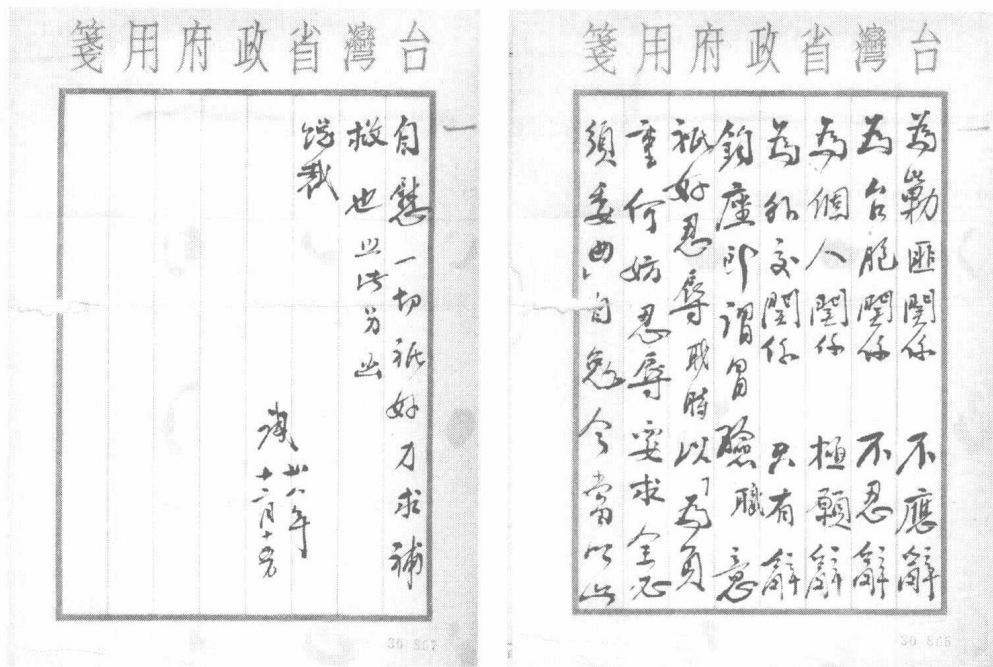 台灣省政府用箋
為勦匪關係 不應辭
為台胞關係 不忍辭
為個人關係 極願辭
為外交關係 只有辭
鈞座即謂冒險職意
祇好忍辱職時以「為負
重何妨忍辱要求全必
須委曲」自勉今當以此
台灣省政府用箋
自慰一切祇好力求補
救也
裁
誠
卅八年
十二月十五